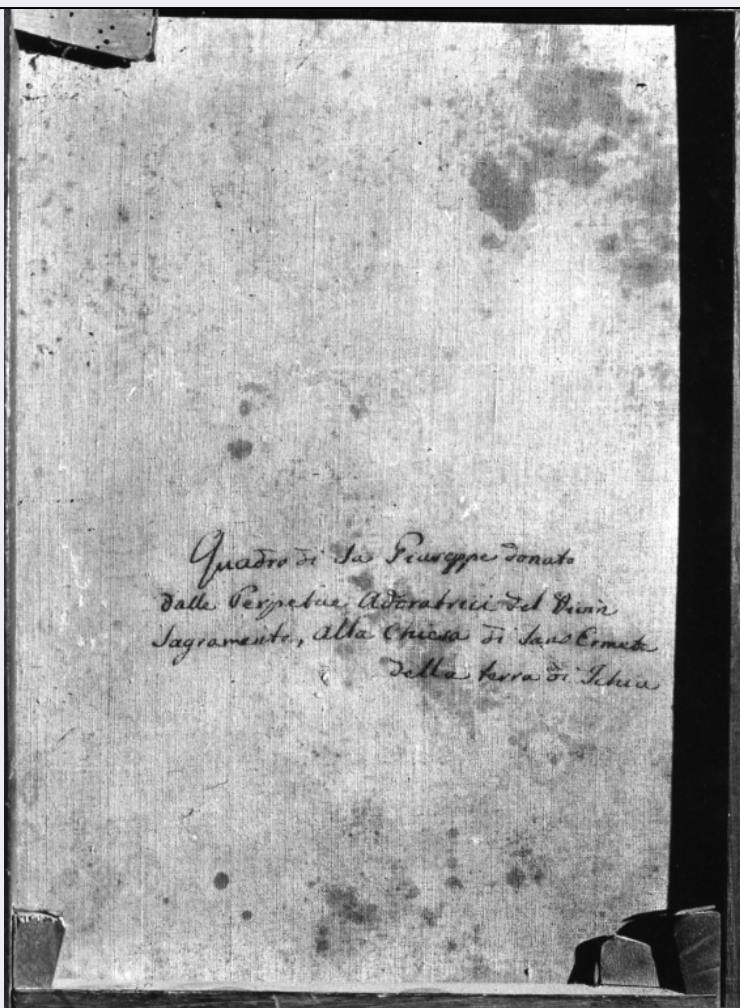 Quadro di Sa Giuseppe donato
dalle Perpetue Adoratrici del Divin
Sagramento, alla Chiesa di Sant Ermete
della terra di Ischia